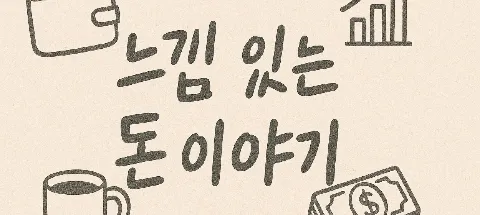 느낌 있는
돈 이야기
$